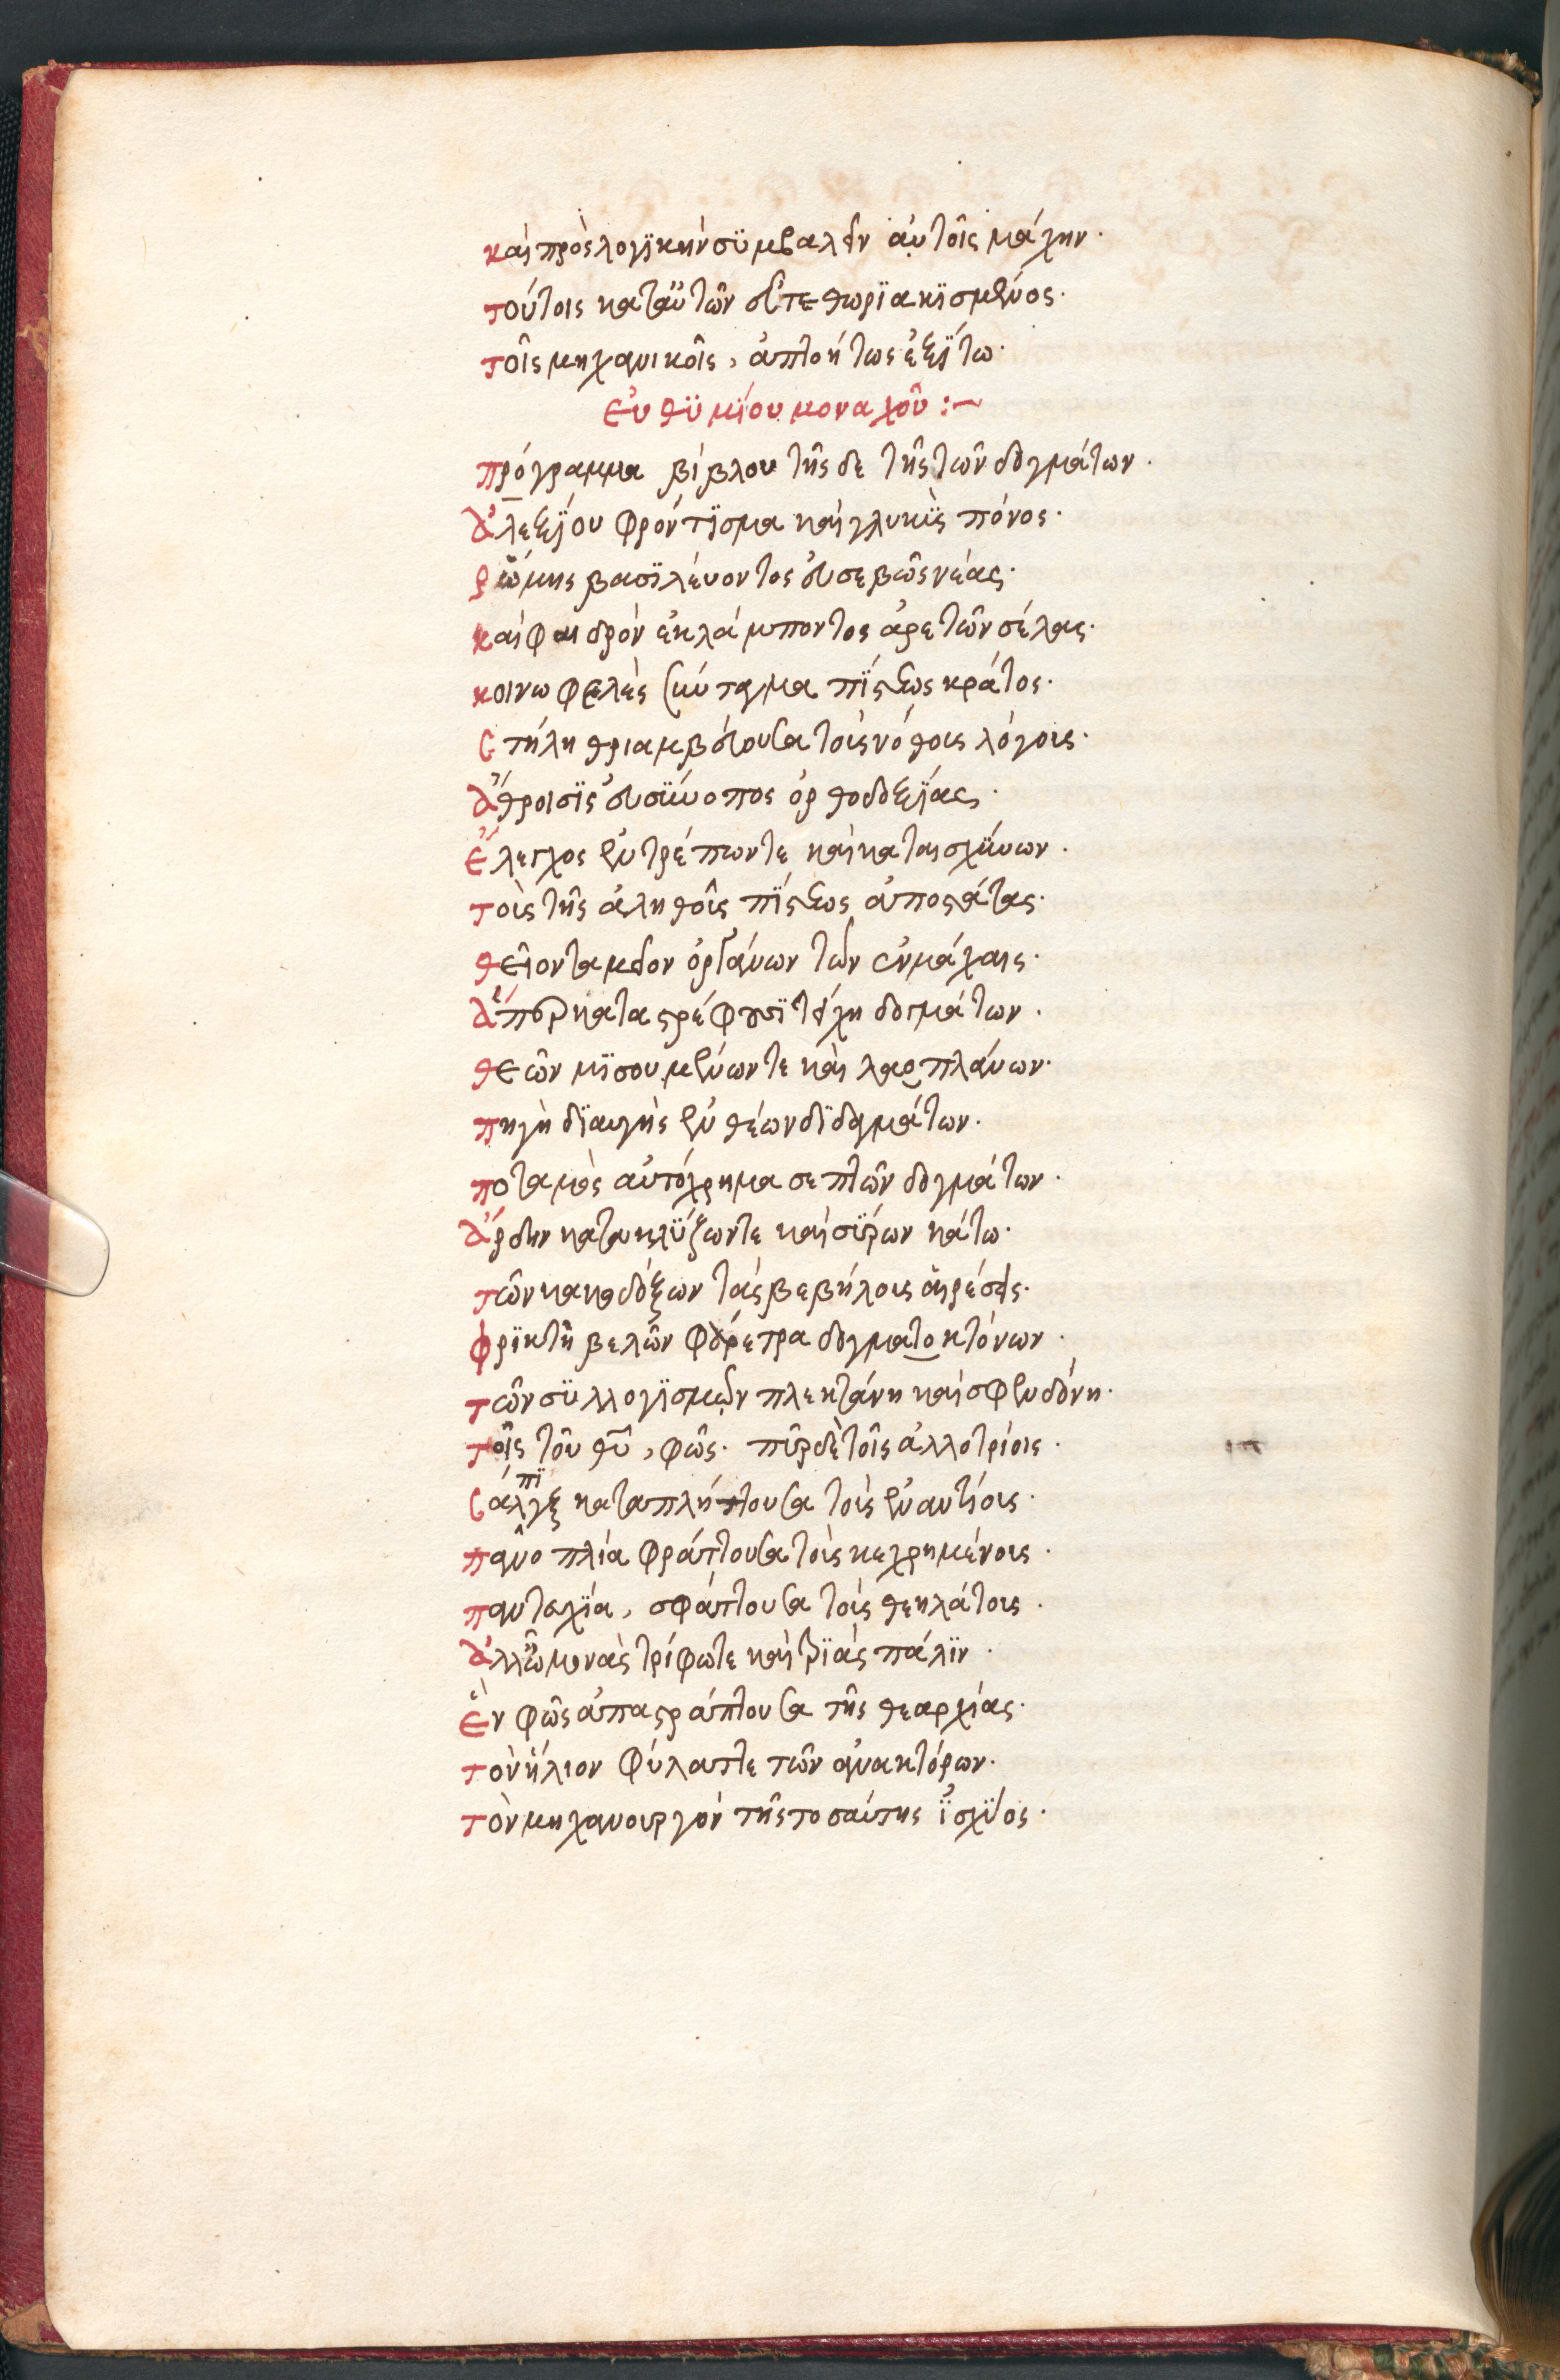 καὶ πρὸς λογϊκὴν σϋμβαλεῖν αὐτοῖς μάχην·
τούτοις κατ' αὐτῶν εὖ τεθωρϊακϊσμένος·
τοῖς μηχανικοῖς, ἀπλοήτως ἐξϊτω·
Εὐθϋμϊου μοναχοῦ :~
πρόγραμμα βίβλου τῆς δε τῆς τῶν δογμάτων·
Ἀλεξΐου φρόντϊσμα καὶ γλυκὺς πόνος·
ῥώμης βασϊλέυοντος εὐσεβῶς νέας·
καὶ φαιδρὸν ἐκλάμποντος ἀρετῶν σέλας·
κοινωφελὲς σύνταγμα πΐστεως κράτος·
Στήλη θριαμβεύουσα τοὺς νόθους λόγους·
Ἄθροισϊς εὐσύνοπος ὀρθοδοξΐας·
Ἔλεγχος ἐντρέπων τε καὶ καταισχύνων·
τοὺς τῆς ἀληθοῦς πΐστεως ἀποστάτας·
θεῖον ταμεῖον ὀργάνων τῶν ἐν μάχαις·
Ἅπερ καταστρέφουσϊ τείχη δογμάτων·
θεῶν μϊσουμένων τε καὶ λαοπλάνων·
πηγὴ δϊαυγὴς ἐνθέων δϊδαγμάτων·
ποταμὸς αὐτόχρημα σεπτῶν δογμάτων·
Ἄρδην κατακλΰζων τε καὶ σΰρων κάτω·
τῶν κακοδόξων τὰς βεβήλους αἱρέσεις·
Φρϊκτὴ βελῶν φαρέτρα δογματοκτόνων·
τῶν σϋλλογϊσμῶν πλεκτάνη καὶ σφενδόνη·
τοῖς τοῦ θυ, φῶς· πῦρ δὲ τοῖς ἀλλοτρίοις·
Σάλπϊγξ καταπλήττουσα τοὺς ἐναντίους·
πανοπλία φράττουσα τοὺς κεχρημένους·
παντευχΐα, σφάττουσα τοὺς θεηλάτους·
Ἀλλ' ὦ μονὰς τρίφωτε καὶ τρϊὰς πάλϊν·
Ἓν φῶς ἀπαστράπτουσα τῆς θεαρχίας·
τὸν ἥλιον φύλαττε τῶν ἀνακτόρων·
τὸν μηχανουργὸν τῆς τοσαύτης ϊσχΰος·